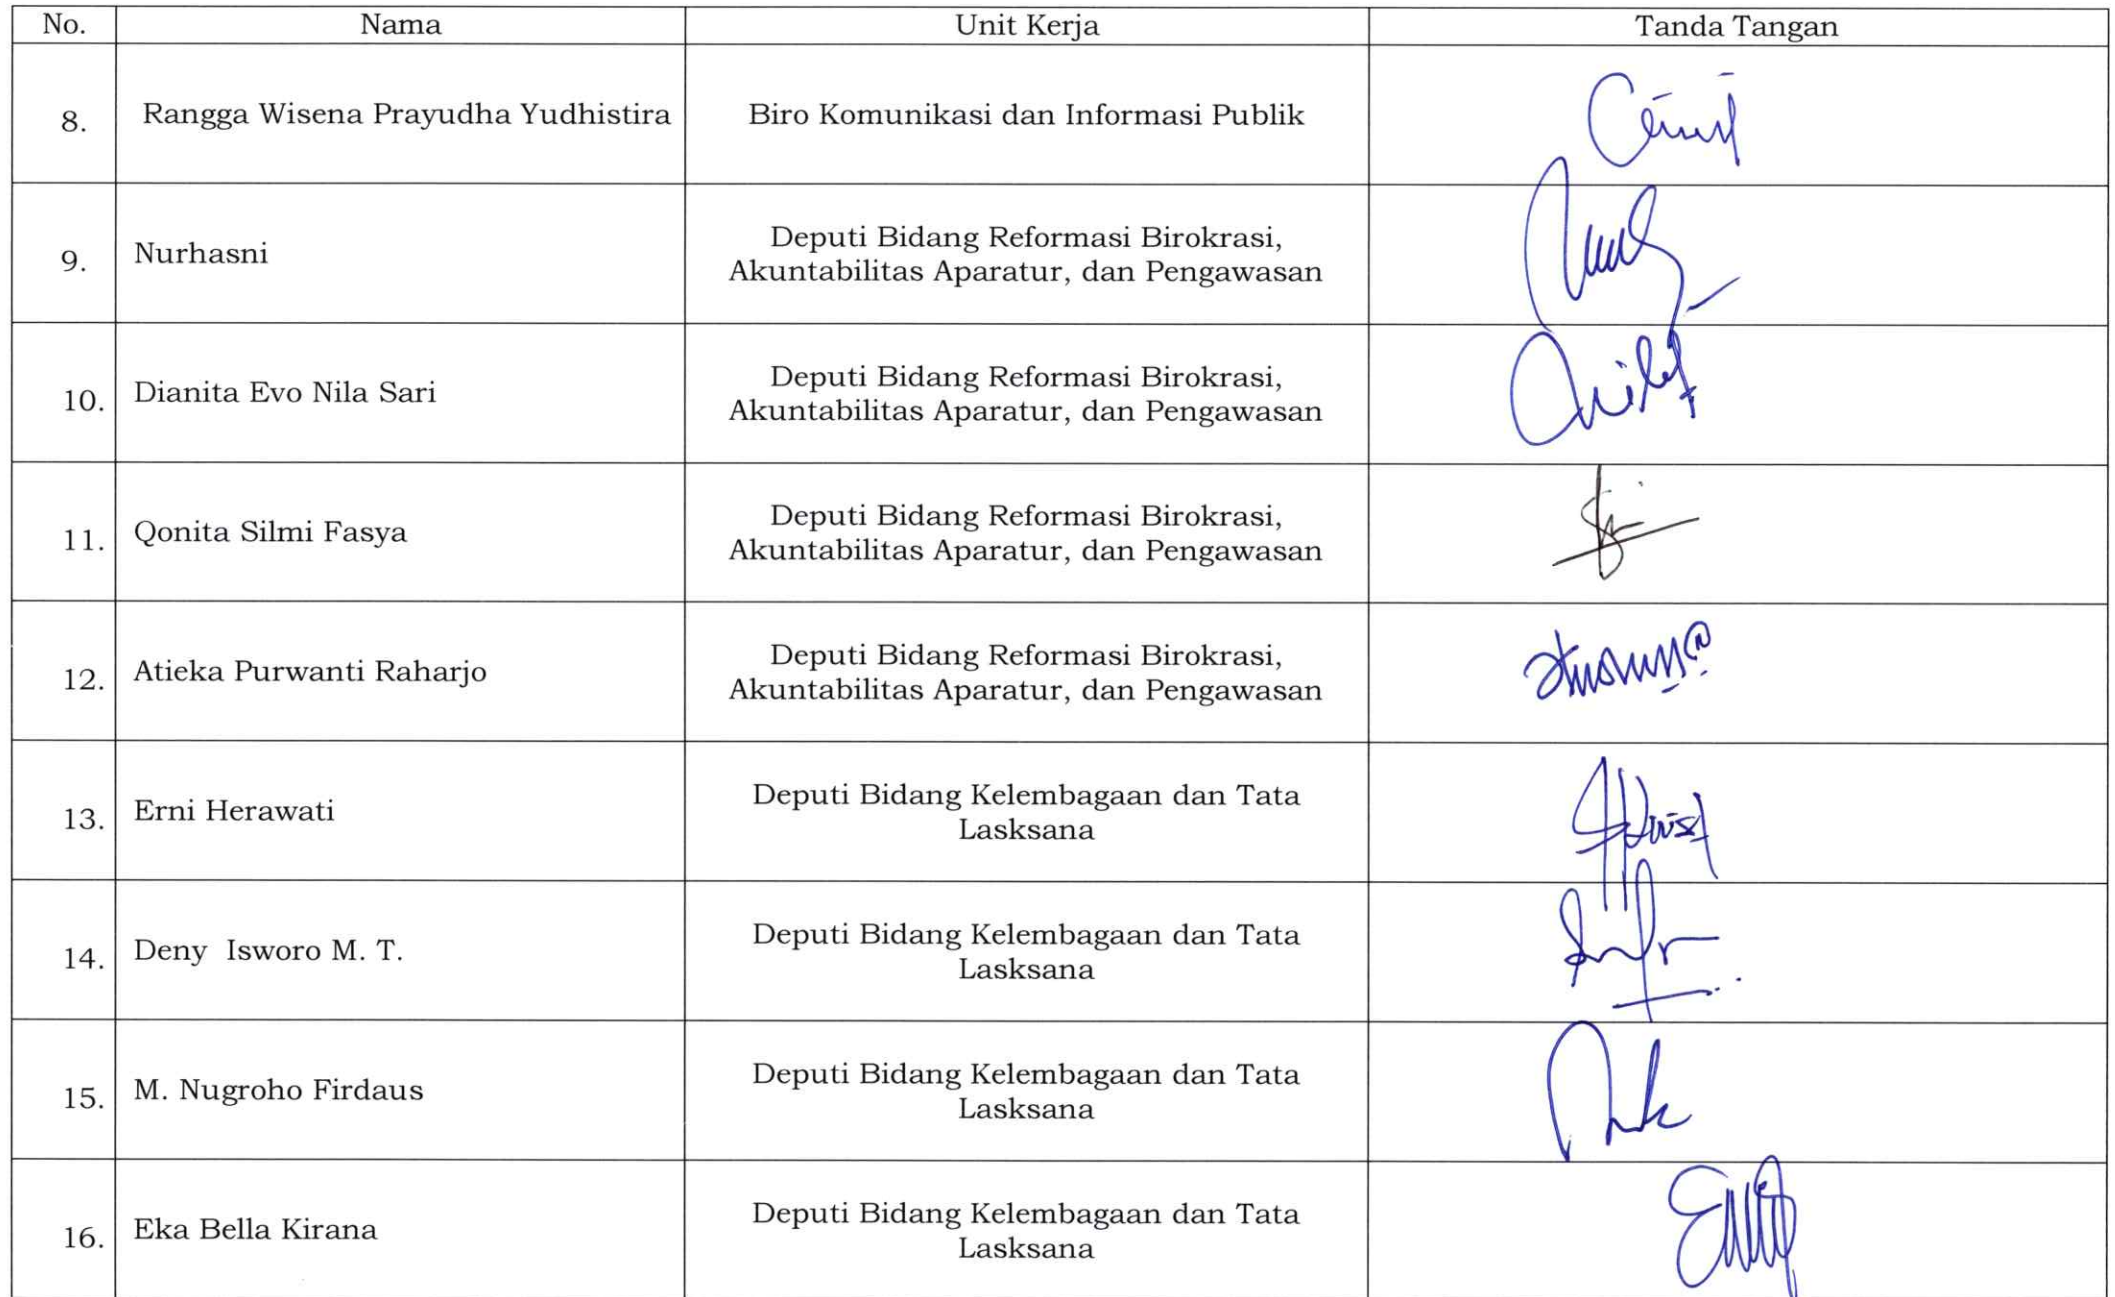 No. Nama Unit Kerja Tanda Tangan
8. Rangga Wisena Prayudha Yudhistira Biro Komunikasi dan Informasi Publik
9. Nurhasni Deputi Bidang Reformasi Birokrasi,
Akuntabilitas Aparatur, dan Pengawasan
10. Dianita Evo Nila Sari Deputi Bidang Reformasi Birokrasi,
Akuntabilitas Aparatur, dan Pengawasan
11. Qonita Silmi Fasya Deputi Bidang Reformasi Birokrasi,
Akuntabilitas Aparatur, dan Pengawasan
12. Atieka Purwanti Raharjo Deputi Bidang Reformasi Birokrasi,
Akuntabilitas Aparatur, dan Pengawasan
13. Erni Herawati Deputi Bidang Kelembagaan dan Tata
Lasksana
14. Deny Isworo M. T. Deputi Bidang Kelembagaan dan Tata
Lasksana
15. M. Nugroho Firdaus Deputi Bidang Kelembagaan dan Tata
Lasksana
16. Eka Bella Kirana Deputi Bidang Kelembagaan dan Tata
Lasksana